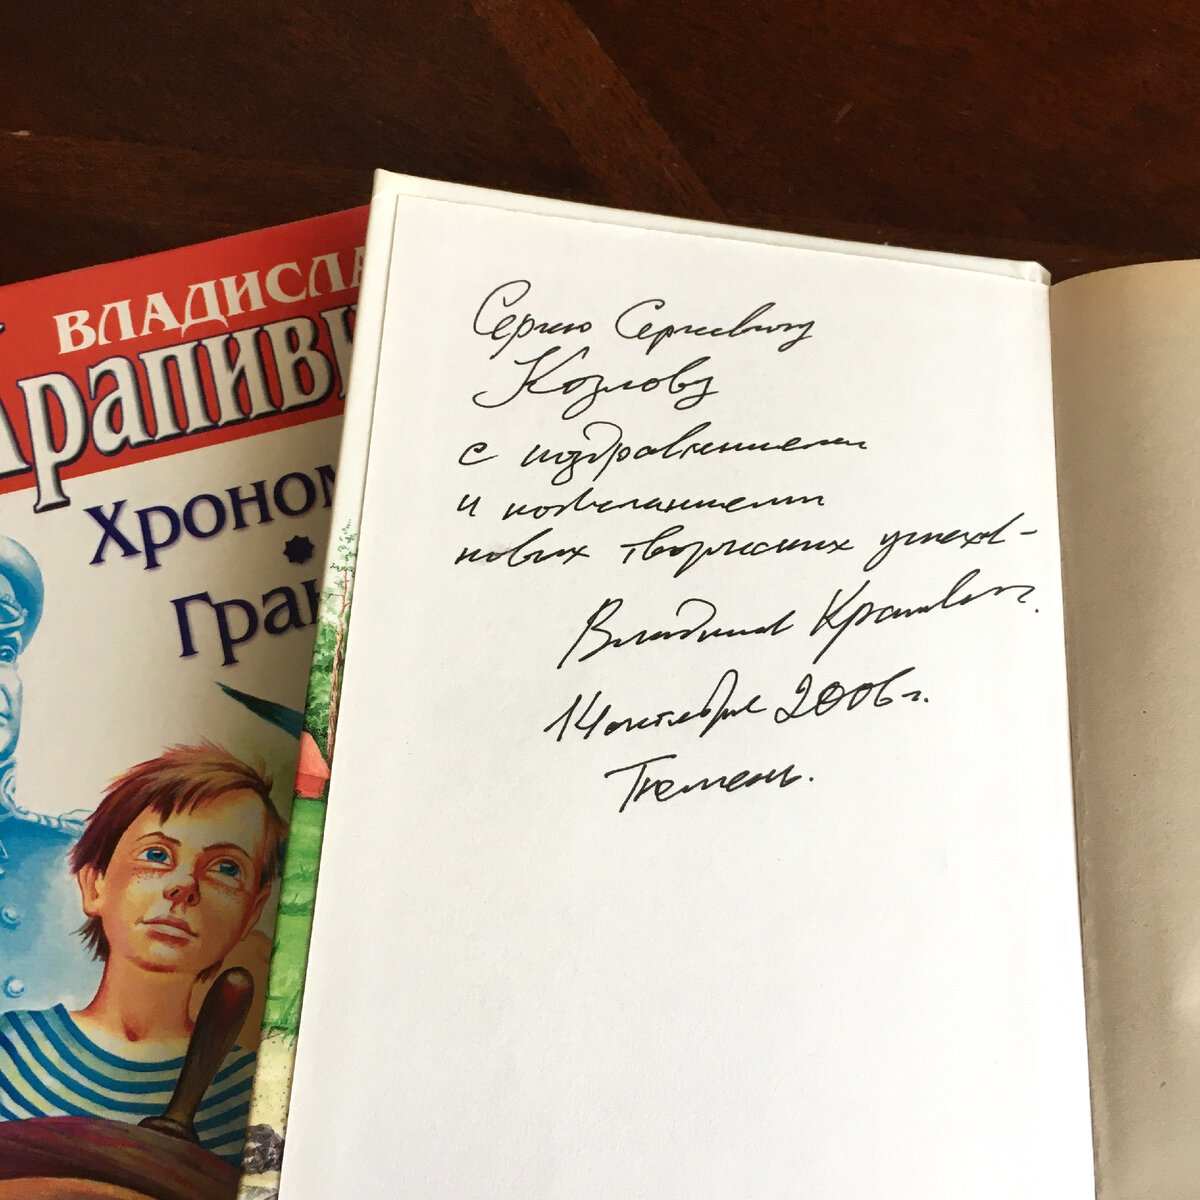 ВЛАДИСЛА
Крапив
Хроном
Гран
Сергею Сергеевичу
Козлову
с поздравлениями
и пожеланиями
новых творческих успехов –
Владислав Крапивин.
14 октября 2006 г.
Тюмень.